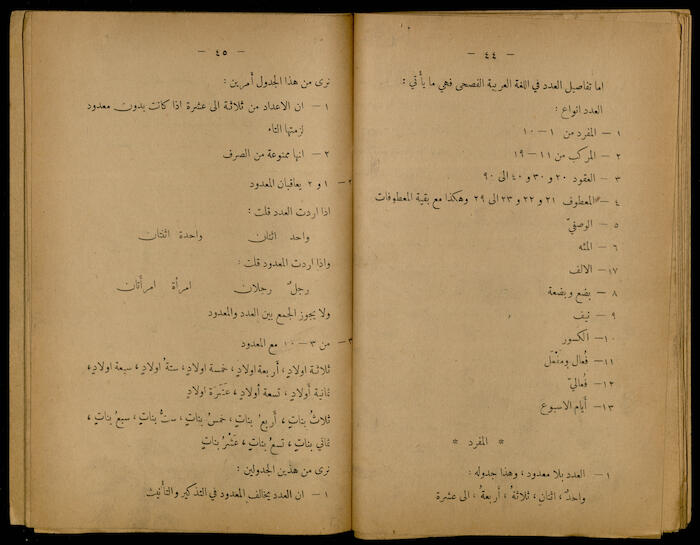 — ٤٤ —
اما تفاصيل العدد في اللغة العربية الفصحى فهي ما يأتي :
العدد انواع :
١ — المفرد من ١ — ١٠
٢ — المركب من ١١ — ١٩
٣ — العقود ٢٠ و ٣٠ و ٤٠ الى ٩٠
٤ — المعطوف ٢١ و ٢٢ و ٢٣ الى ٢٩ وهكذا مع بقية المعطوفات
٥ — الوصفيّ
٦ — المئه
١٧ — الالف
٨ — بضع وبضعة
٩ — نيف
١٠ — الكسور
١١ — فُعال ومَفْعَل
١٢ — فُعاليّ
١٣ — أيام الاسبوع
* المفرد *
١ — العدد بلا معدود ، وهذا جدوله :
واحدٌ ، اثنانِ ، ثلاثةُ ، أربعةُ ، الى عشرة
— ٤٥ —
نرى من هذا الجدول أمرين :
١ — ان الاعداد من ثلاثة الى عشرة اذا كانت بدون معدود
لزمتها التاء
٢ — انها ممنوعة من الصرف
٢ — ١ و ٢ يعاقبان المعدود
اذا اردت العدد قلت :
واحد اثنان واحدة اثنتان
واذا اردت المعدود قلت :
رجلٌ رجلان امرأة امرأتان
ولا يجوز الجمع بين العدد والمعدود
٣ — من ٣ — ١٠ مع المعدود
ثلاثة اولادٍ ، أربعة اولادٍ ، خمسة اولادٍ ، ستةُ اولادٍ ، سبعة اولادٍ ،
ثمانية أولادٍ ، تسعة أولادٍ ، عَشَرَة اولادٍ
ثلاثُ بناتٍ ، أربعُ بناتٍ ، خمسُ بناتٍ ، ستُّ بناتٍ ، سبعُ بناتٍ ،
ثماني بناتٍ ، تسعُ بناتٍ ، عَشْرُ بناتٍ
نرى من هذين الجدولين :
١ — ان العدد يخالف المعدود في التذكير والتأنيث